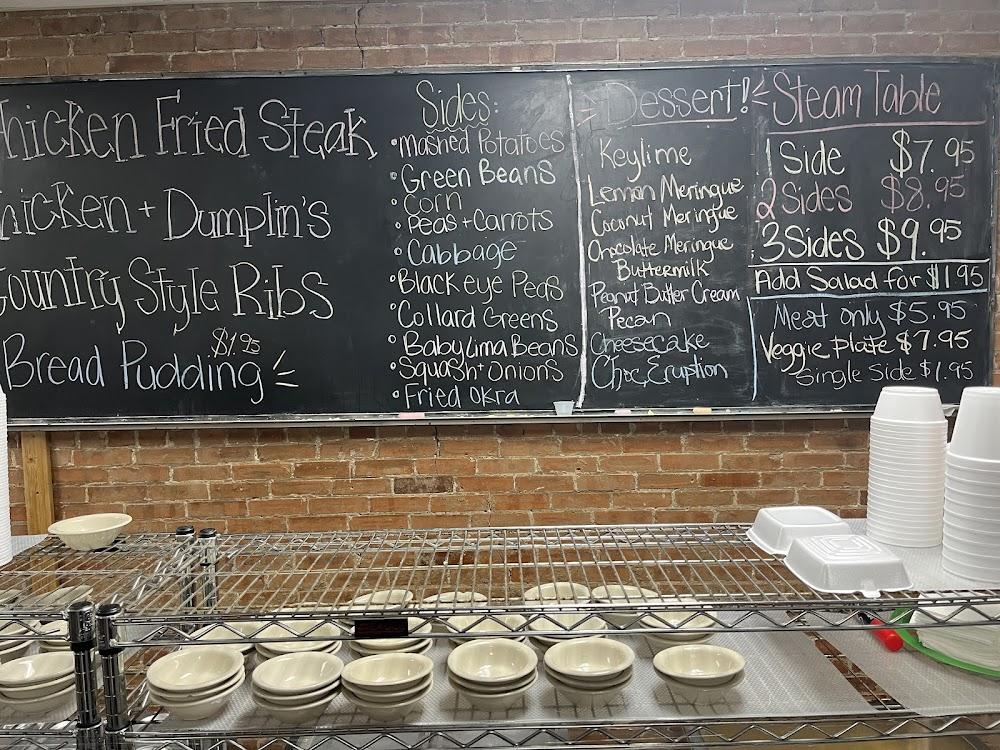 hicken Fried Steak
hicken + Dumplin's
Country Style Ribs
$1.95
Bread Pudding
Sides:
• Mashed Potatoes
• Green Beans
• Corn
• Peas + Carrots
• Cabbage
• Blackeye Peas
• Collard Greens
• Baby Lima Beans
• Squash + Onions
• Fried Okra
Dessert!
Keylime
Lemon Meringue
Coconut Meringue
Chocolate Meringue
Buttermilk
Peanut Butter Cream
Pecan
Cheesecake
Choc. Eruption
Steam Table
1 Side $7.95
2 Sides $8.95
3 Sides $9.95
Add Salad for $1.95
Meat only $5.95
Veggie Plate $7.95
Single Side $1.95